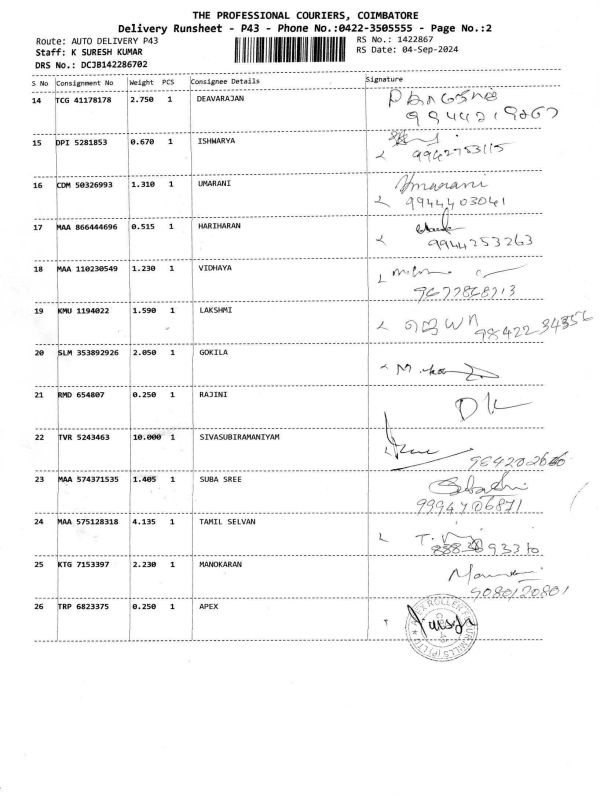 THE PROFESSIONAL COURIERS, COIMBATORE
Delivery Runsheet - P43 - Phone No.:0422-3505555 - Page No.:2
Route: AUTO DELIVERY P43
RS No.: 1422867
Staff: K SURESH KUMAR
RS Date: 04-Sep-2024
DRS No.: DCJB142286702
S No Consignment No Weight PCS Consignee Details Signature
14 TCG 41178178 2.750 1 DEAVARAJAN
15 DPI 5281853 0.670 1 ISHWARYA
9942753115
16 CDM 50326993 1.310 1 UMARANI Umarani
9944403041
17 MAA 866444696 0.515 1 HARIHARAN
9944253263
18 MAA 110230549 1.230 1 VIDHAYA
19 KMU 1194022 1.590 1 LAKSHMI
9842234356
20 SLM 353892926 2.050 1 GOKILA
21 RMD 654807 0.250 1 RAJINI DK
22 TVR 5243463 10.000 1 SIVASUBIRAMANIYAM
23 MAA 574371535 1.405 1 SUBA SREE
9994706871
24 MAA 575128318 4.135 1 TAMIL SELVAN
25 KTG 7153397 2.230 1 MANOKARAN
9080120801
26 TRP 6823375 0.250 1 APEX